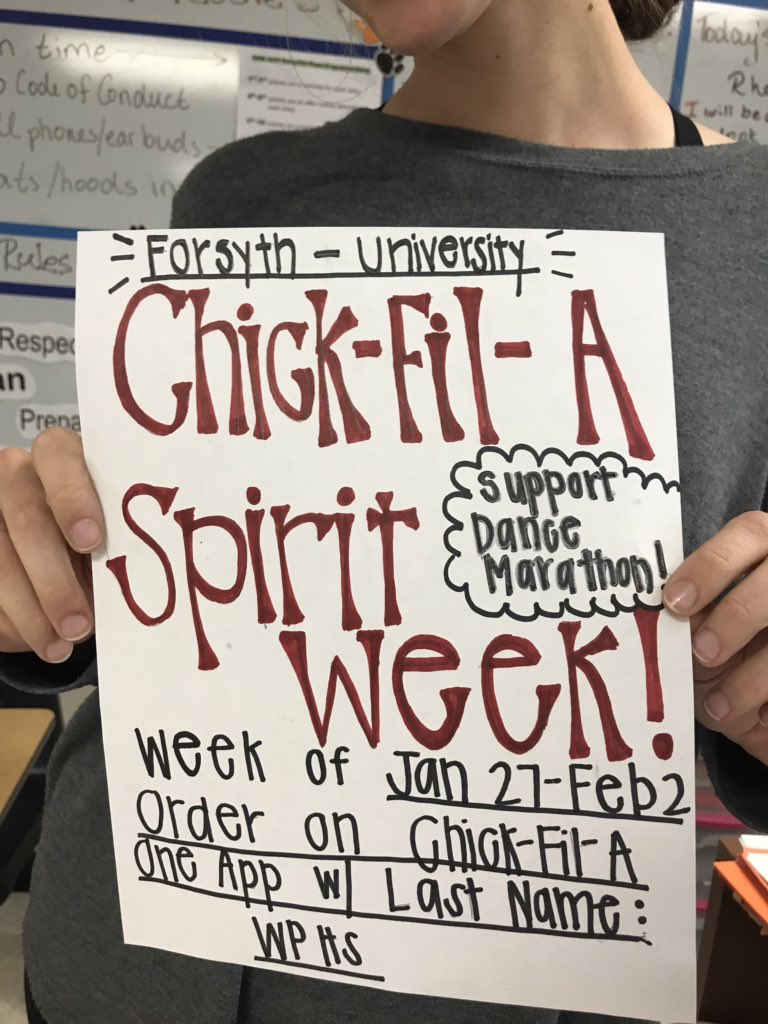 n time
Code of Conduct
phones/ear buds
ats/hoods in
Rules
Respec
an
Prepa
Today's
Rho
I will be a
Forsyth - University
Chick-Fil-A
Spirit
Week!
Support
Dance
Marathon!
Week of Jan 27-Feb 2
Order on Chick-Fil-A
One App w/ Last Name:
WPHS